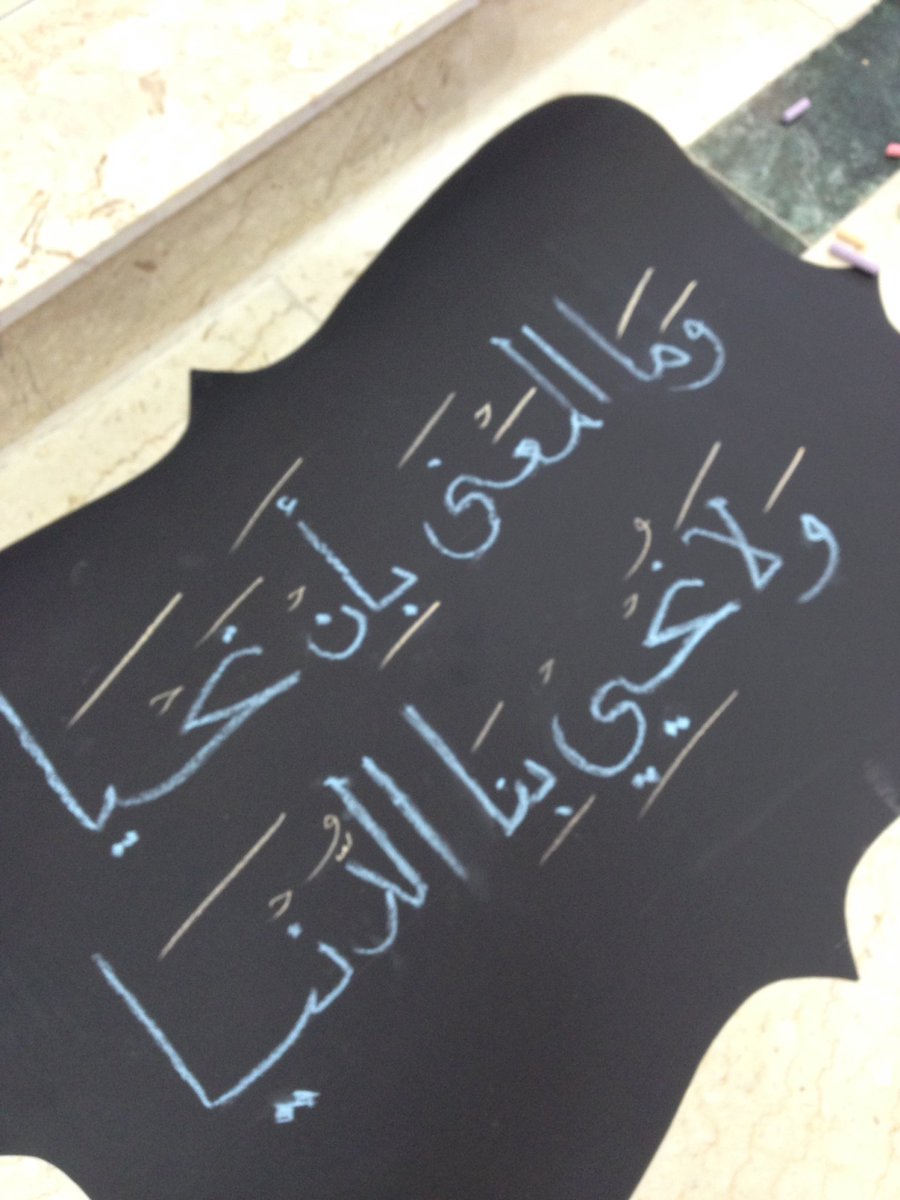 وَمَا المَعْنَى بِأَنْ نَحْيَا
وَلَا نُحْيِيْ بِنَا الدُّنْيَا